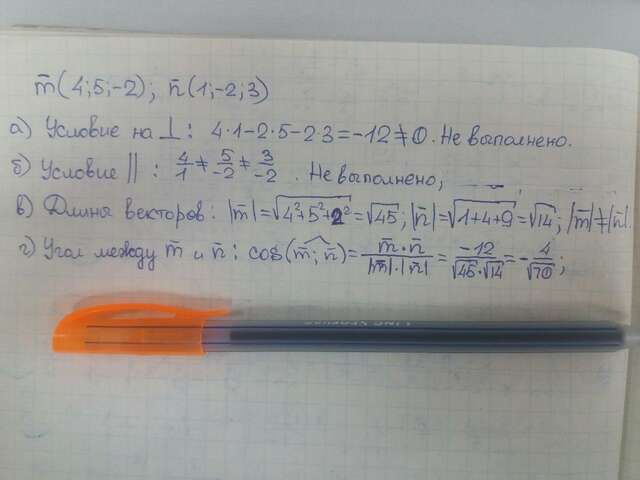 m̄(4;5;-2); n̄(1;-2;3)
а) Условие на ⊥: 4·1-2·5-2·3=-12≠0. Не выполнено.
б) Условие ||: 4/1 ≠ 5/-2 ≠ 3/-2. Не выполнено;
в) Длины векторов: |m̄|=√(4²+5²+2²)=√45; |n̄|=√(1+4+9)=√14; |m̄|≠|n̄|.
г) Угол между m̄ и n̄: cos(m̄;n̄)= m̄·n̄/|m̄|·|n̄| = -12/√45·√14 = -4/√70;